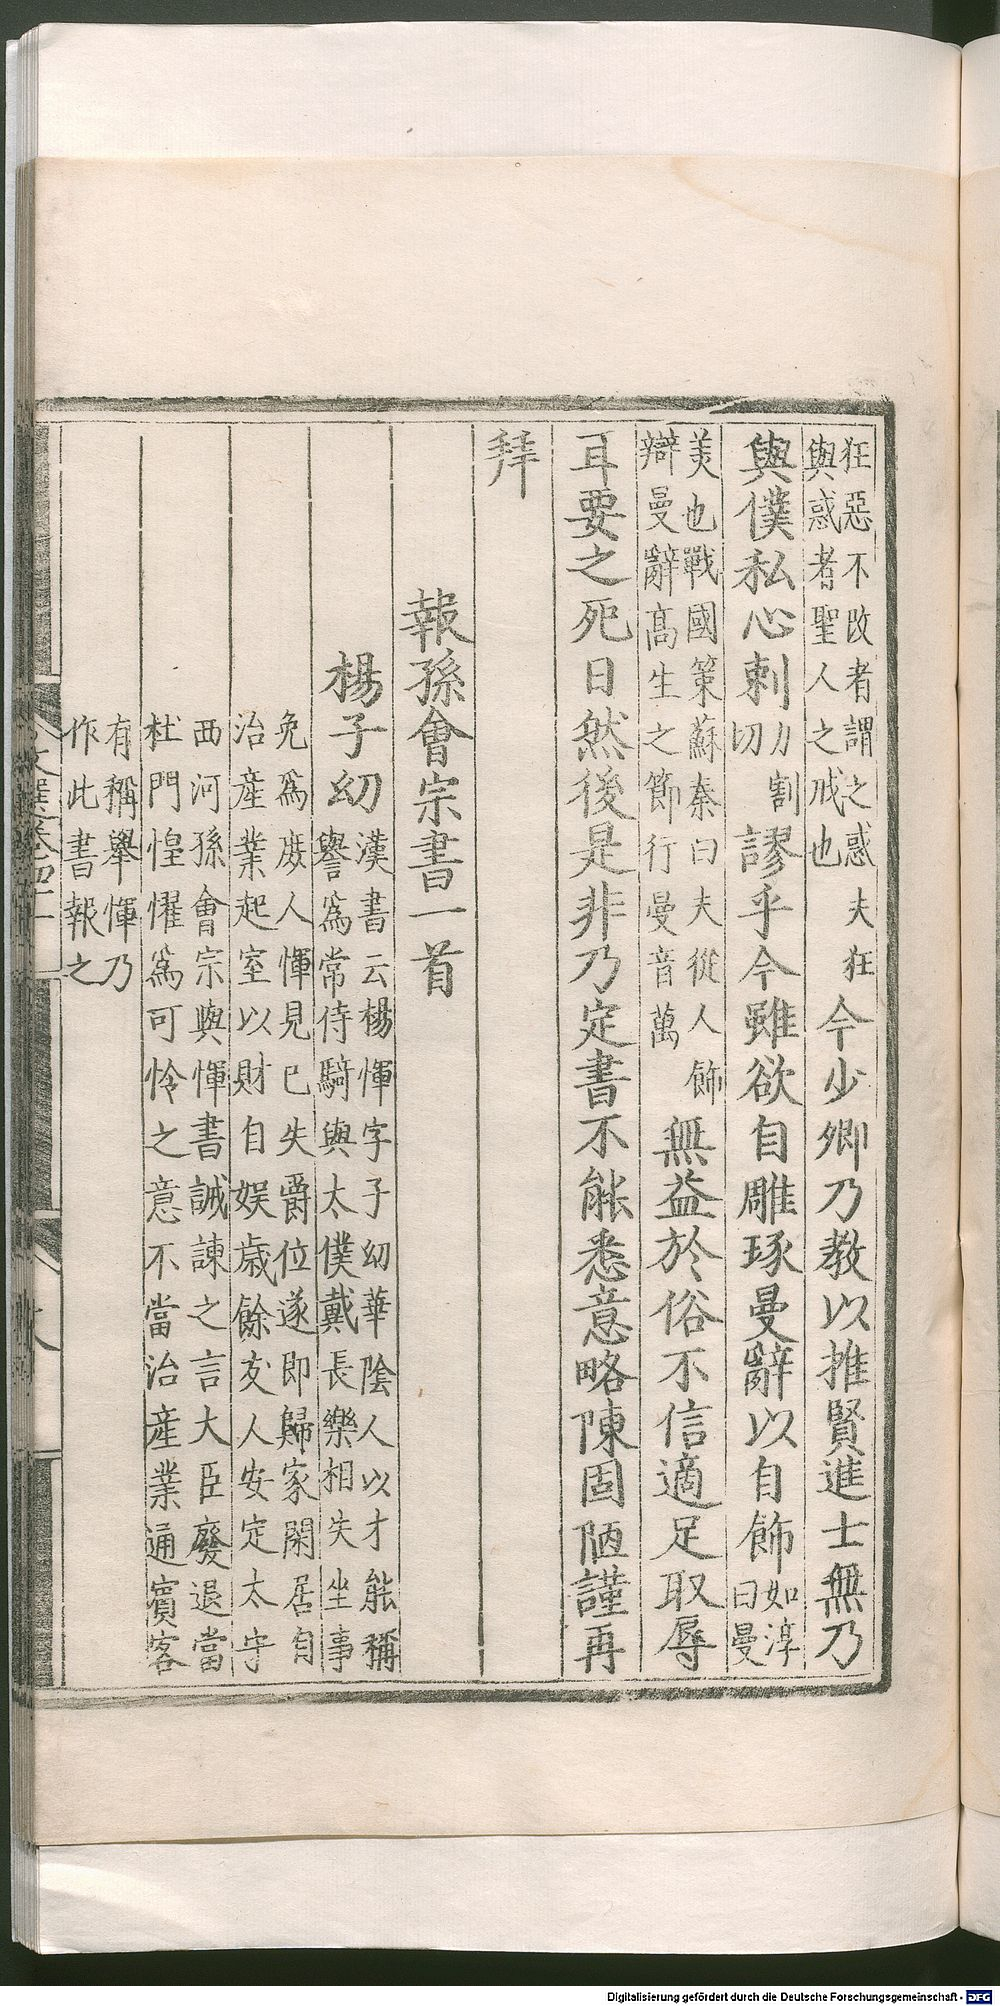 狂惡不改者謂之惑夫狂
與惑者聖人之戒也
今少卿乃教以推賢進士無乃
與僕私心剌
力割
切
謬乎今雖欲自雕琢曼辭以自飾
如淳
曰曼
美也戰國策蘇秦曰夫從人飾
辯曼辭高生之節行曼音萬
無益於俗不信適足取辱
耳要之死日然後是非乃定書不能悉意略陳固陋謹再
拜
報孫會宗書一首
楊子幼
漢書云楊惲字子幼華陰人以才能稱
譽爲常侍騎與太僕戴長樂相失坐事
免爲庻人惲見已失爵位遂即歸家閑居自
治產業起室以財自娛歲餘友人安定太守
西河孫會宗與惲書誡諫之言大臣廢退當
杜門惶懼爲可怜之意不當治產業通賓客
有稱舉惲乃
作此書報之
文選卷四十一